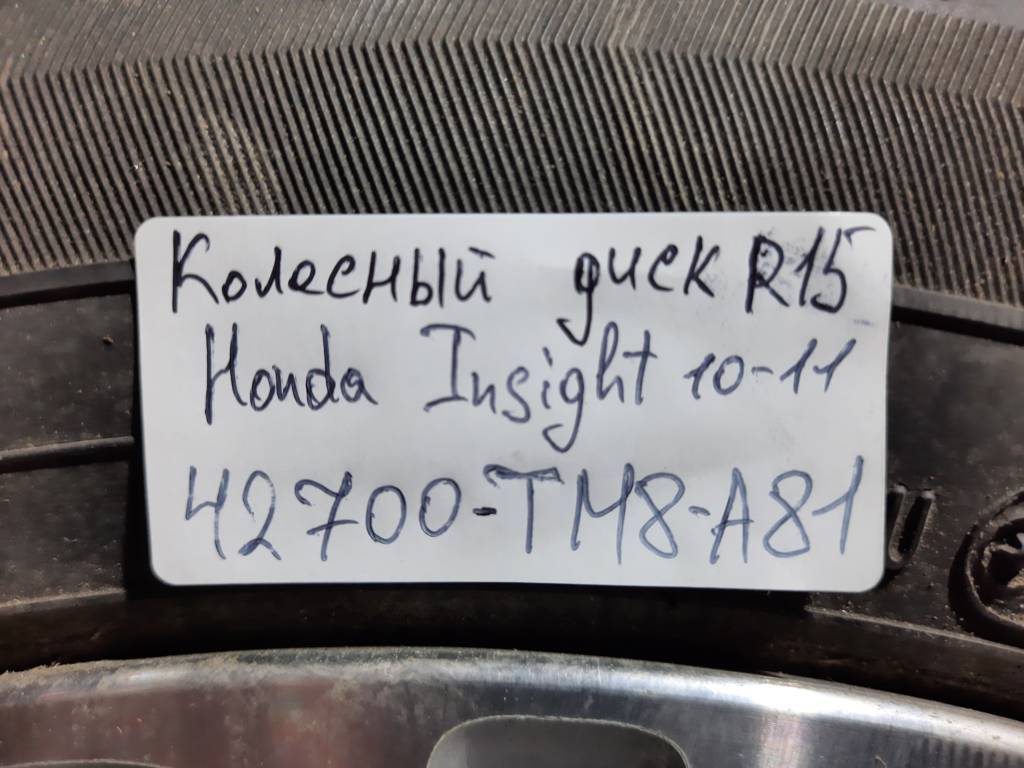 Колесный диск R15
Honda Insight 10-11
42700-TM8-A81
U